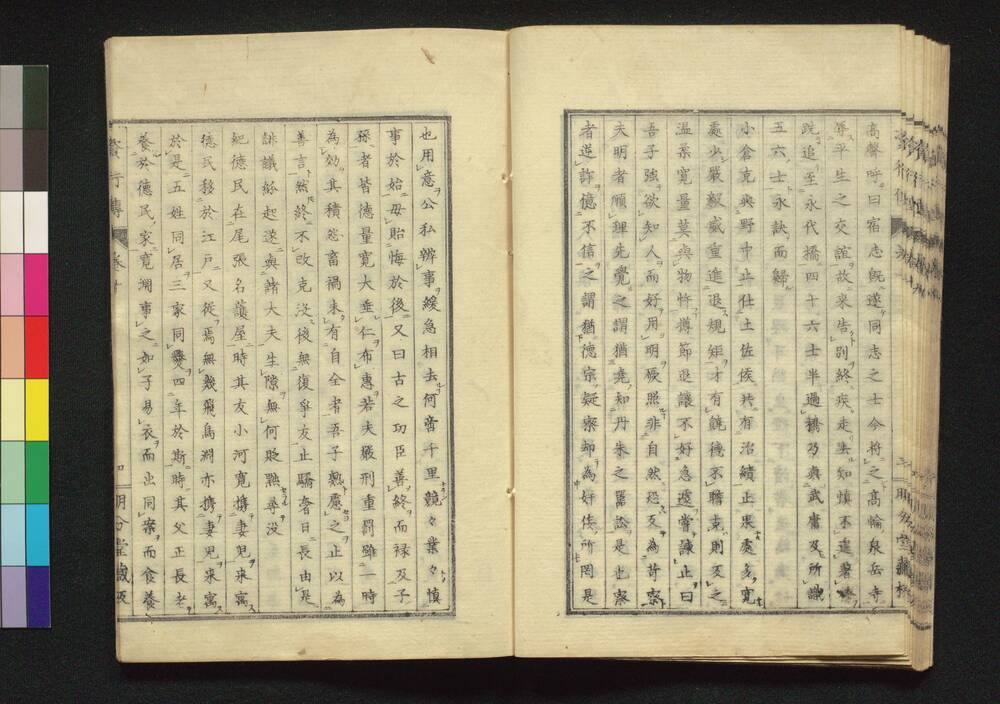 高聲呼曰宿志既遂同志之士今將之高輪泉岳寺
辱平生之交誼故来告別終疾走去知慎不遑著
跣追至永代橋四十六士半過橋乃與武庸及所識
五六士永訣而歸
小倉克與野中止仕土佐侯共有治績止果處多寬
處少嚴毅威重進退規矩才有餘德不贍克則反之
温柔寬量莫與物忤撙節退讓不好急遽嘗諫止曰
吾子強欲知人而好用明厥照非自然恐反為苛察
夫明者順理先覺之謂猶堯知丹朱之嚚訟是也察
者逆詐億不信之謂猶德宗疑察却為奸佞所罔是
也用意公私辨事緩急相去何啻千里兢々業々慎
事於始毋貽悔於後又曰古之功臣善終而禄及子
孫者皆德量寬大垂仁布惠若夫嚴刑重罰雖一時
為効其積怨畜禍未有自全者吾子熟慮之止以為
善言然終不改克没後無復爭友止驕奢日長由是
誹議紛起遂與諸大夫生隙無何貶黜尋没
紀德民在尾張名護屋時其友小河寬攜妻兒来寓
德民移於江戸又從焉無幾飛鳥澗亦攜妻兒来寓
於是五姓同居三家同爨四年於斯時其父正長老
養於德民家寬澗事之如子易衣而出同案而食養